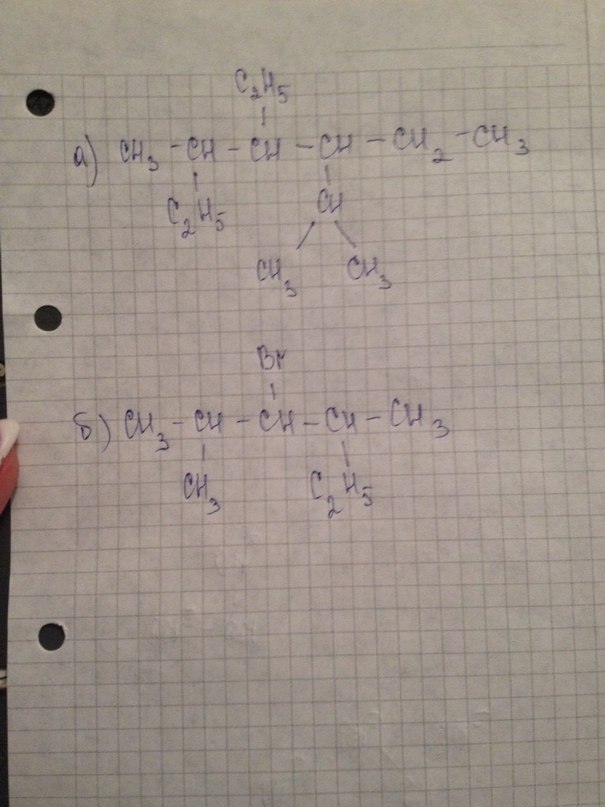 C₂H₅
а) CH₃ - CH - CH - CH - CH₂ - CH₃
C₂H₅ CH
CH₃ CH₃
Br
б) CH₃ - CH - CH - CH - CH₃
CH₃ C₂H₅